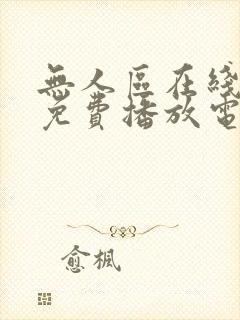 無人區在綫
免費播放電
愈楓